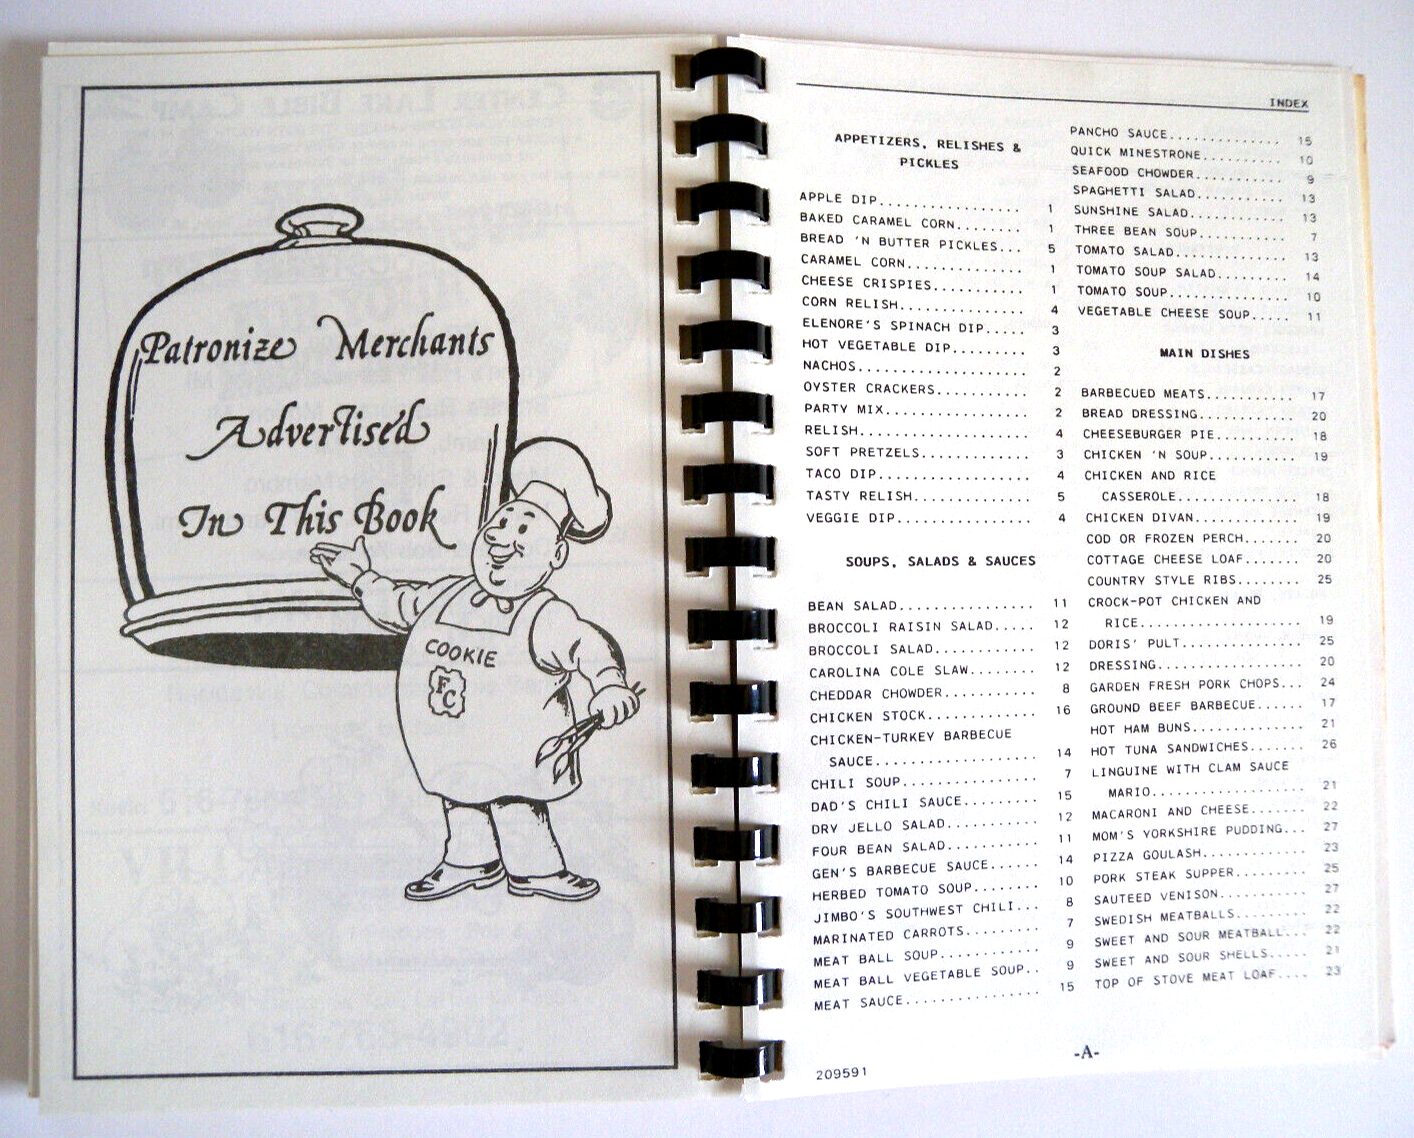 Patronize Merchants
Advertised
In This Book
COOKIE
FC
INDEX
APPETIZERS, RELISHES &
PICKLES
APPLE DIP................. 1
BAKED CARAMEL CORN........ 1
BREAD 'N BUTTER PICKLES... 5
CARAMEL CORN............. 1
CHEESE CRISPIES.......... 1
CORN RELISH.............. 4
ELENORE'S SPINACH DIP..... 3
HOT VEGETABLE DIP......... 3
NACHOS.................... 2
OYSTER CRACKERS........... 2
PARTY MIX................. 2
RELISH.................... 4
SOFT PRETZELS............. 3
TACO DIP.................. 4
TASTY RELISH.............. 5
VEGGIE DIP................ 4
SOUPS, SALADS & SAUCES
BEAN SALAD................ 11
BROCCOLI RAISIN SALAD..... 12
BROCCOLI SALAD............ 12
CAROLINA COLE SLAW........ 12
CHEDDAR CHOWDER........... 8
CHICKEN STOCK............. 16
CHICKEN-TURKEY BARBECUE
SAUCE................... 14
CHILI SOUP................ 7
DAD'S CHILI SAUCE......... 15
DRY JELLO SALAD........... 12
FOUR BEAN SALAD........... 11
GEN'S BARBECUE SAUCE...... 14
HERBED TOMATO SOUP........ 10
JIMBO'S SOUTHWEST CHILI... 8
MARINATED CARROTS......... 7
MEAT BALL SOUP............ 9
MEAT BALL VEGETABLE SOUP.. 9
MEAT SAUCE................ 15
PANCHO SAUCE.............. 15
QUICK MINESTRONE.......... 10
SEAFOOD CHOWDER........... 9
SPAGHETTI SALAD........... 13
SUNSHINE SALAD............ 13
THREE BEAN SOUP........... 7
TOMATO SALAD.............. 13
TOMATO SOUP SALAD......... 14
TOMATO SOUP............... 10
VEGETABLE CHEESE SOUP..... 11
MAIN DISHES
BARBECUED MEATS........... 17
BREAD DRESSING............ 20
CHEESEBURGER PIE.......... 18
CHICKEN 'N SOUP........... 19
CHICKEN AND RICE
CASSEROLE............... 18
CHICKEN DIVAN............. 19
COD OR FROZEN PERCH....... 20
COTTAGE CHEESE LOAF....... 20
COUNTRY STYLE RIBS........ 25
CROCK-POT CHICKEN AND
RICE.................... 19
DORIS' PULT............... 25
DRESSING.................. 20
GARDEN FRESH PORK CHOPS... 24
GROUND BEEF BARBECUE...... 17
HOT HAM BUNS.............. 21
HOT TUNA SANDWICHES....... 26
LINGUINE WITH CLAM SAUCE
MARIO................... 21
MACARONI AND CHEESE....... 22
MOM'S YORKSHIRE PUDDING... 27
PIZZA GOULASH............. 23
PORK STEAK SUPPER......... 25
SAUTEED VENISON........... 27
SWEDISH MEATBALLS......... 22
SWEET AND SOUR MEATBALL... 22
SWEET AND SOUR SHELLS..... 21
TOP OF STOVE MEAT LOAF.... 23
-A-
209591